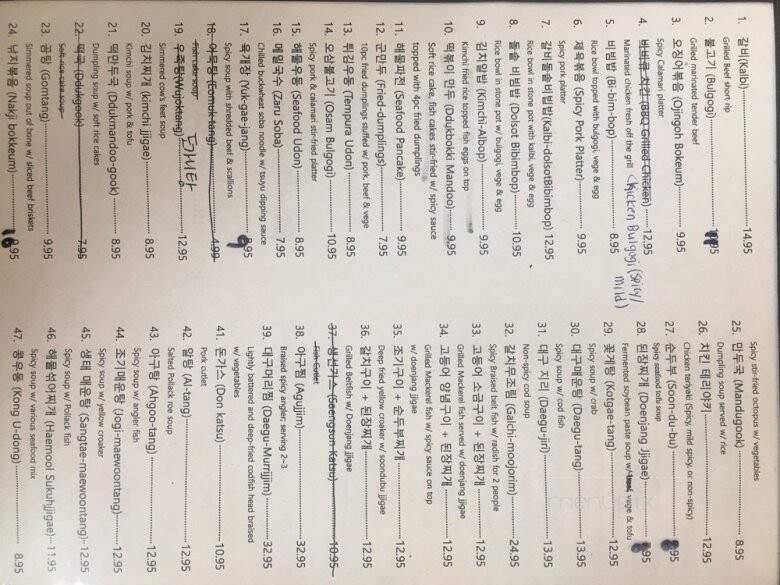 1. 갈비(Kalbi) 14.95
Grilled Beef short rip
2. 불고기(Bulgogi) .95
Grilled marinated tender beef
3. 오징어볶음(Ojingoh Bokeum) 9.95
Spicy Calamari platter
4. 바비큐 치킨(BBQ Grilled Chicken) 12.95
Chicken Bulgogi (spicy/mild)
Marinated chicken fresh off the grill
5. 비빔밥(Bi-bim-bop) 8.95
Rice bowl topped with bulgogi, vege & egg
6. 제육볶음(Spicy Pork Platter) 9.95
Spicy pork platter
7. 갈비돌솥비빔밥(Kalbi-dolsotBibimbop) 12.95
Rice bowl in stone pot with kalbi, vege & egg
8. 돌솥 비빔밥(Dolsot Bibimbop) 10.95
Rice bowl in stone pot w/ bulgogi, vege & egg
9. 김치알밥(Kimchi-Albop) 9.95
Kimchi fried rice topped fish eggs on top
10. 떡볶이 만두(Ddukbokki Mandoo) 9.95
Soft rice cake, fish cakes stir-fried w/ spicy sauce
topped with 4pc fried dumplings
11. 해물파전(Seafood Pancake) 9.95
12. 군만두(Fried-dumplings) 7.95
10pc fried dumplings stuffed w/ pork, beef & vege
13. 튀김우동(Tempura Udon) 8.95
14. 오삼불고기(Osam Bulgogi) 10.95
Spicy pork & calamari stir-fried platter
15. 해물우동(Seafood Udon) 8.95
16. 메밀국수(Zaru Soba) 7.95
Chilled buckwheat soba noodle w/ tsuyu dipping sauce
17. 육개장(Yuk-gae-jang) 9.95
Spicy soup with shredded beef & scallions
18. 어묵탕(Eomuk-tang) 4.99
Fish cake soup
19. 우족탕(Wujoktang) 12.95
Simmered cow's feet soup
20. 김치찌개(kimchi jjigae) 8.95
Kimchi soup w/ pork & tofu
21. 떡만두국(Ddukmandoo-gook) 8.95
Dumpling soup w/ soft rice cakes
22. 떡국(Ddukgook) 7.95
Soft rice cake soup
23. 곰탕(Gomtang) 9.95
Simmered soup out of bone w/ sliced beef briskets
24. 낙지볶음(Nakji bokkeum) .95
Spicy stir-fried octopus w/ vegetables
25. 만두국(Mandugook) 8.95
Dumpling soup served w/ rice
26. 치킨 테리야키 12.95
Chicken teriyaki (Spicy, mild spicy, or non-spicy)
27. 순두부(Soon-du-bu) .95
Spicy seafood tofu soup
28. 된장찌개(Doenjang Jjigae) .95
Fermented soybean paste soup w/ vege & tofu
29. 꽃게탕(Kotgae-tang) 12.95
Spicy soup w/ crab
30. 대구매운탕(Daegu-tang) 13.95
Spicy soup w/ cod fish
31. 대구 지리(Daegu-jiri) 13.95
Non-spicy cod soup
32. 갈치무조림(Galchi-moojorim) 24.95
Spicy Braised belt fish w/ radish for 2 people
33. 고등어 소금구이 + 된장찌개 12.95
Grilled Mackerel fish served w/ doenjang jjigae
34. 고등어 양념구이 + 된장찌개 12.95
Grilled Mackerel fish w/ spicy sauce on top
35. 조기구이 + 순두부찌개 12.95
w/ doenjang jjigae
Deep fried yellow croaker w/ soondubu jjigae
36. 갈치구이 + 된장찌개 12.95
Grilled Beltfish w/ Doenjang jjigae
37. 생선까스(Saengsun Katsu) 10.95
Fish Cutlet
38. 아구찜(Agujjim) 32.95
Braised spicy angler; serving 2~3
39. 대구머리찜(Daegu-Murrijjim) 32.95
Lightly battered and deep-fried codfish head braised
w/ vegetables
41. 돈가스(Don katsu) 10.95
Pork cutlet
42. 알탕(Al-tang) 12.95
Salted Pollack roe soup
43. 아구탕(Ahgoo-tang) 12.95
Spicy soup w/ angler fish
44. 조기매운탕(Jogi-maewoontang) 12.95
Spicy soup w/ yellow croaker
45. 생태 매운탕(Sangtae-maewoontang) 12.95
Spicy soup w/ Pollack fish
46. 해물섞어찌개(Haemool Sukuhjjigae) 11.95
Spicy soup w/ various seafood mix
47. 콩우동(Kong U-dong) 8.95